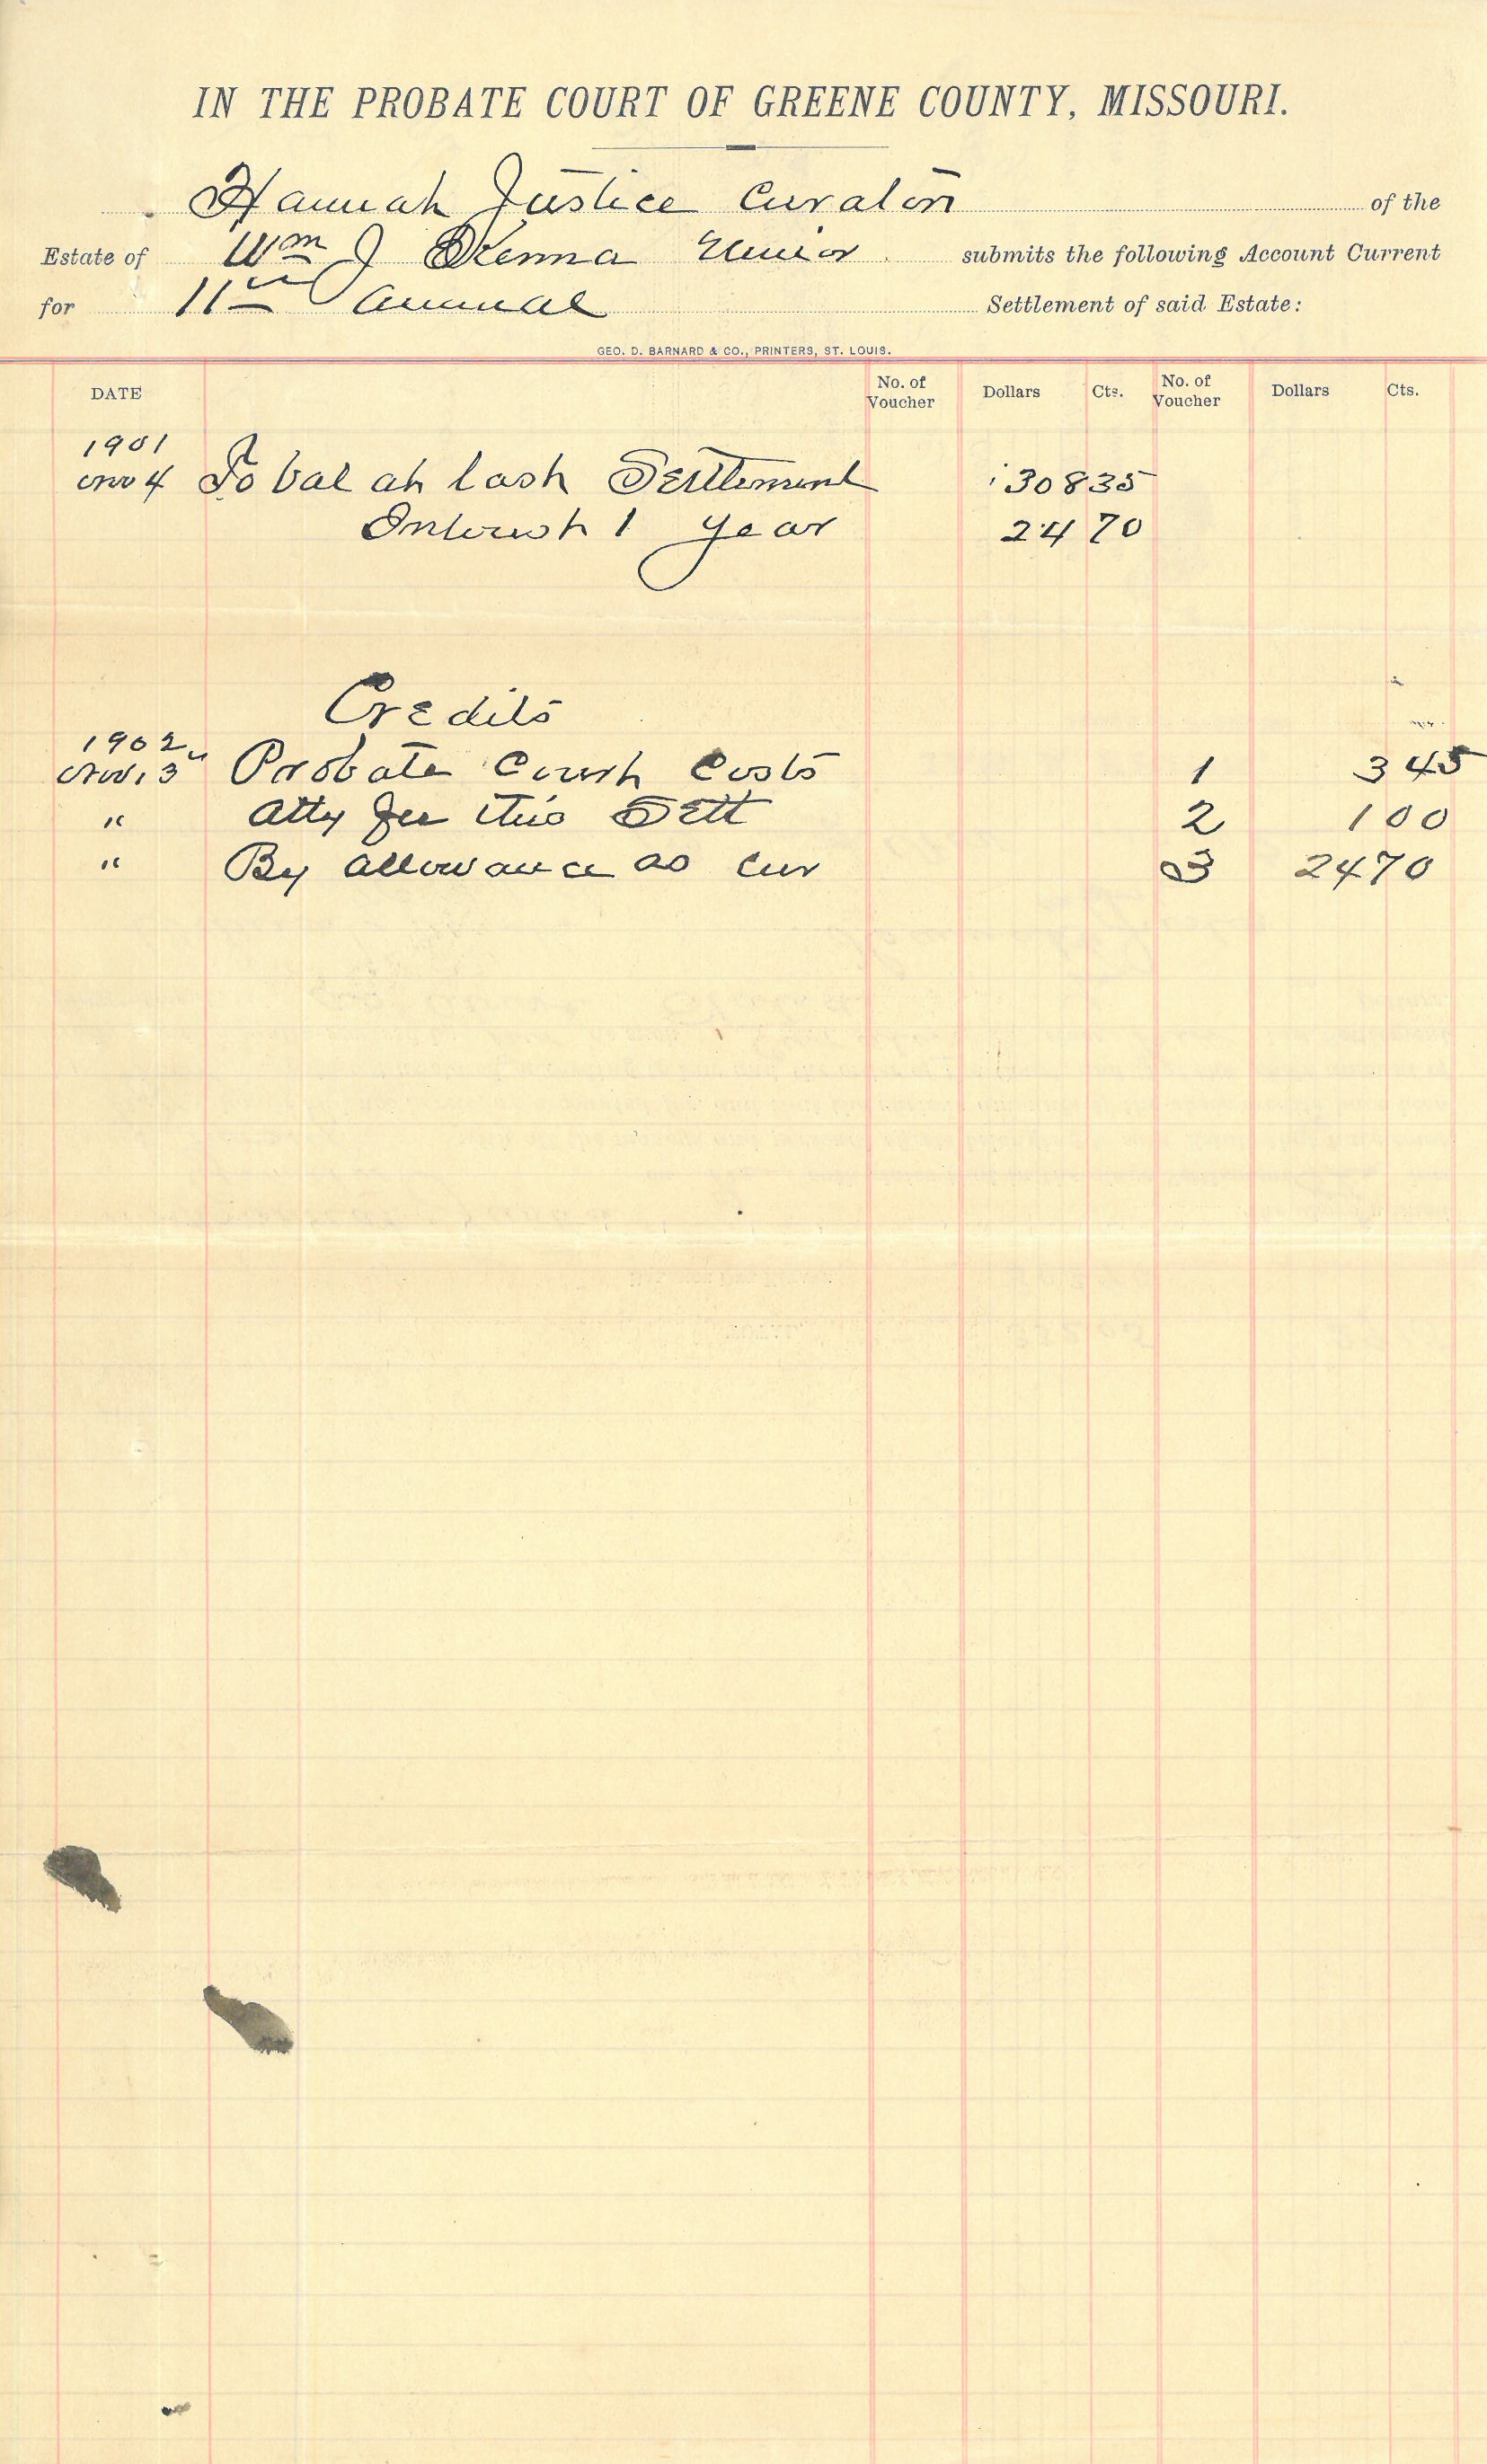 IN THE PROBATE COURT OF GREENE COUNTY, MISSOURI.
Hannah Justice Curator of the
Estate of Wm J Kenna submits the following Account Current
for 11th Annual Settlement of said Estate:
GEO. D. BARNARD & CO., PRINTERS, ST. LOUIS.
DATE No. of Voucher Dollars Cts. No. of Voucher Dollars Cts.
1901
Nov 4 To bal at last Settlement 308 35
Interest 1 year 24 70
Credits
1902
Nov. 3 Probate Court Costs 1 3 45
" Atty fee this Sett 2 1 00
" By allowance as Cur 3 24 70